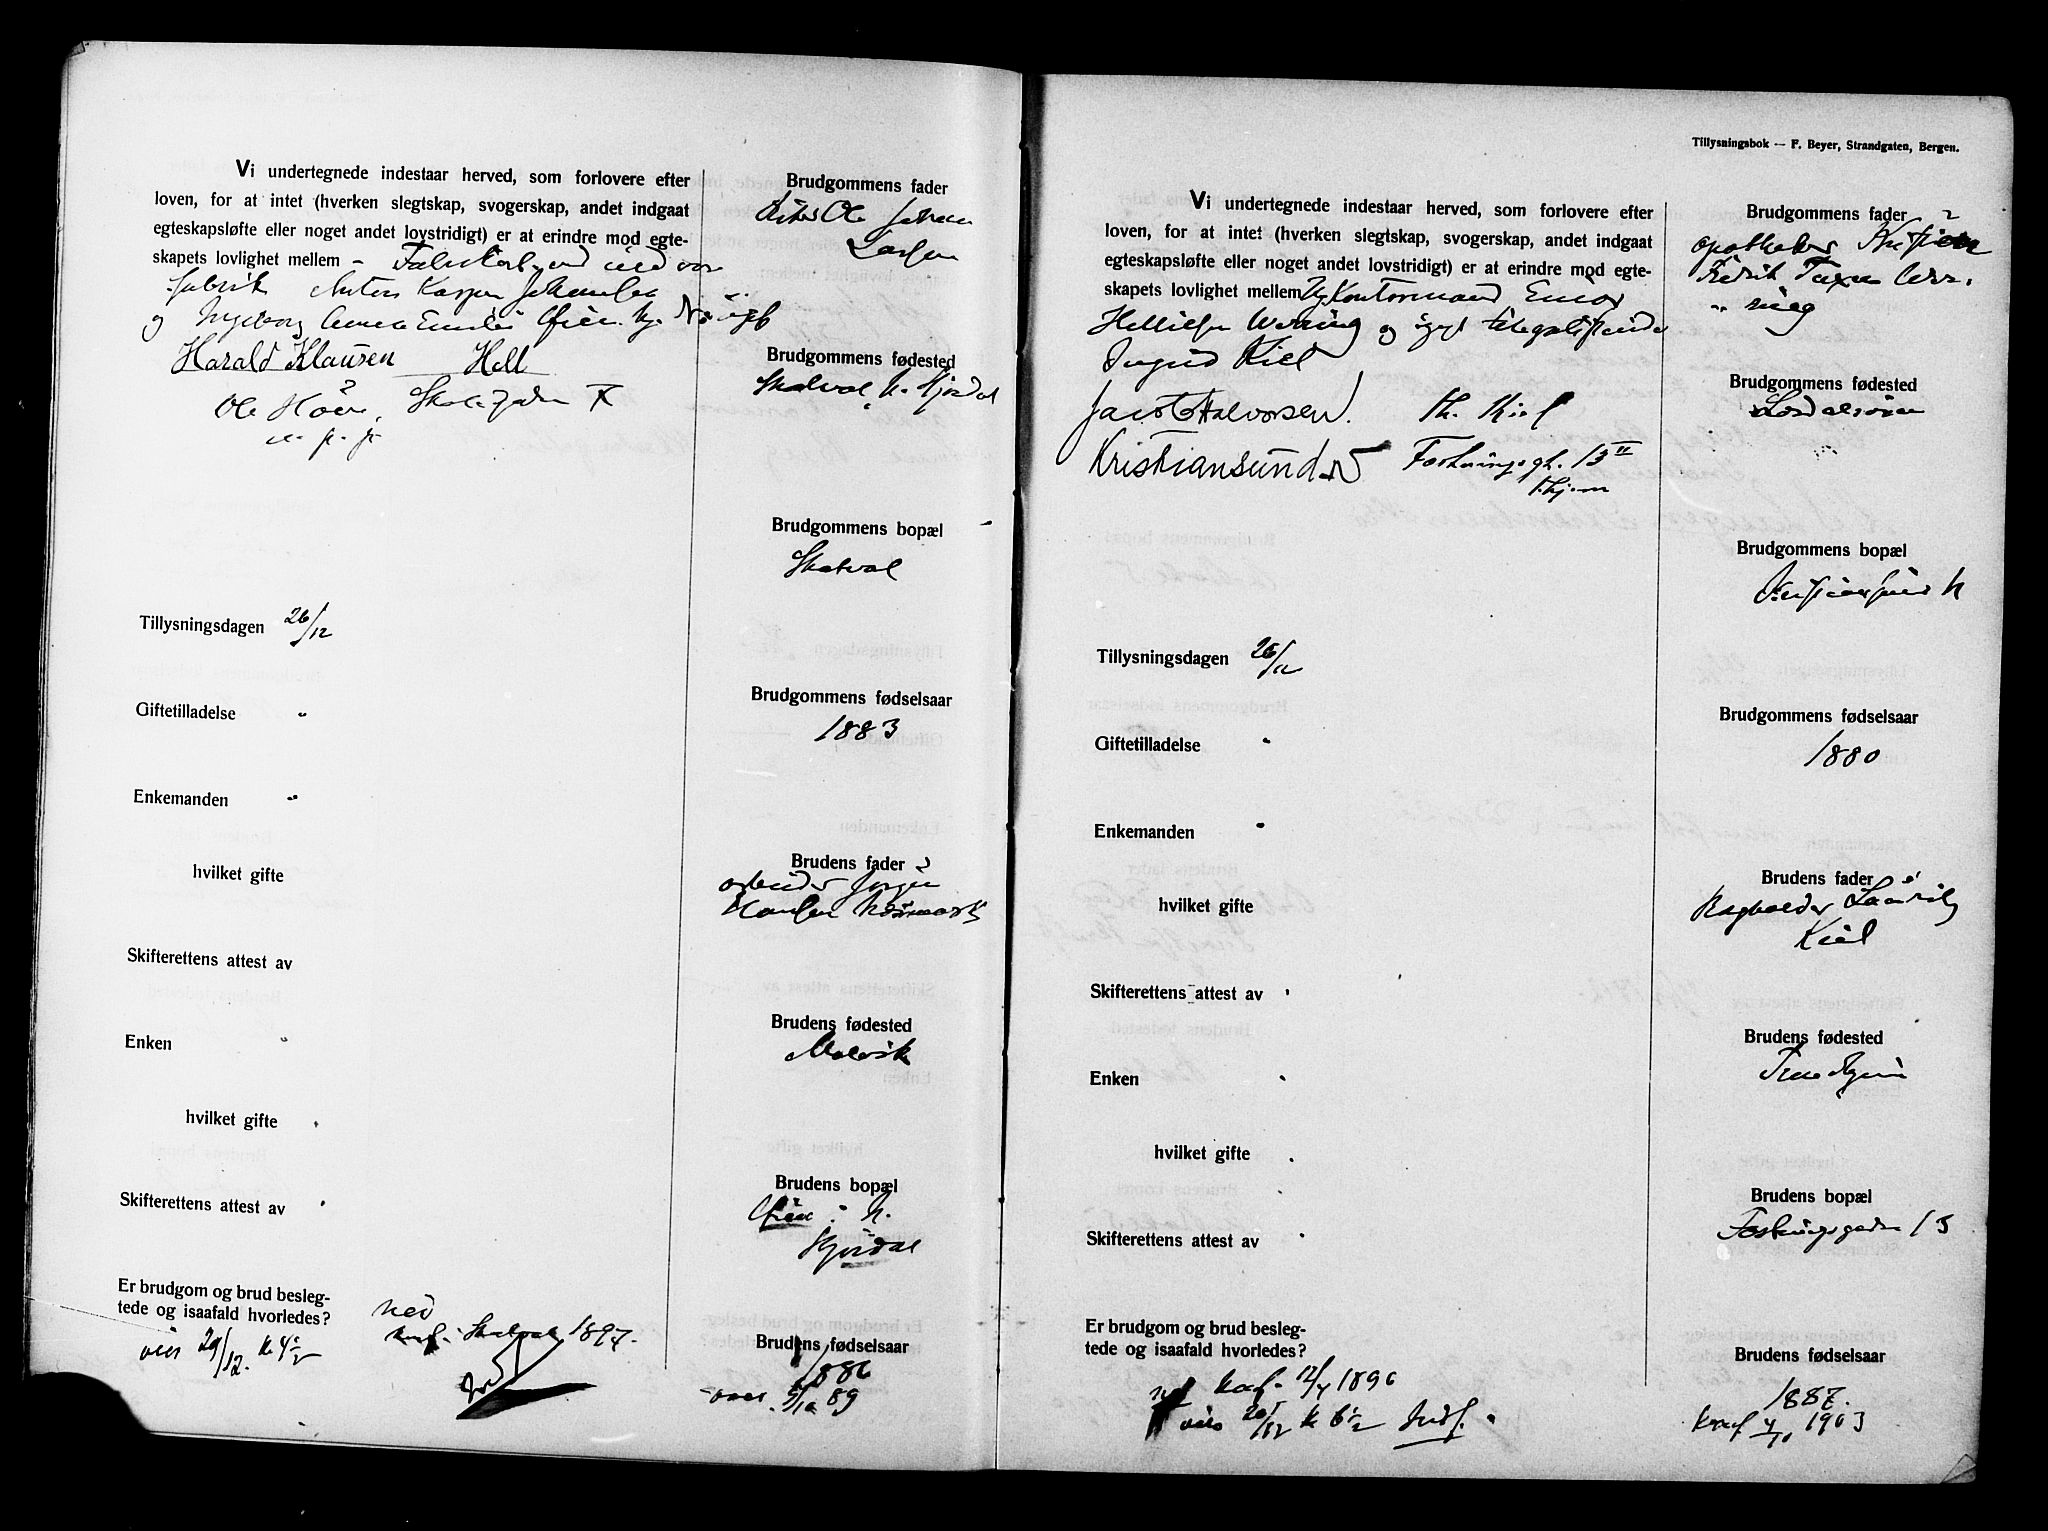 Vi undertegnede indestaar herved, som forlovere efter
loven, for at intet (hverken slegtskap, svogerskap, andet indgaat
egteskapsløfte eller noget andet lovstridigt) er at erindre mod egte-
skapets lovlighet mellem
fabrik Anton Kasper Johansen
og Ingeborg
Harald Klausen Hell
Ole
Tillysningsdagen 26/12
Giftetilladelse "
Enkemanden "
hvilket gifte
Skifterettens attest av
Enken "
hvilket gifte
Skifterettens attest av
Er brudgom og brud besleg-
tede og isaafald hvorledes?
nei
konf. Skatval 1897.
viet 29/12. k. 4 1/2
Brudgommens fader
Ole Johan
Larsen
Brudgommens fødested
Skatval, N. Stjørdal
Brudgommens bopæl
Skatval
Brudgommens fødselsaar
1883
Brudens fader
arbeider Jørgen
Hansen
Brudens fødested
Malvik
Brudens bopæl
N.
Stjørdal
Brudens fødselsaar
1886
89
Tillysningsbok — F. Beyer, Strandgaten, Bergen.
Vi undertegnede indestaar herved, som forlovere efter
loven, for at intet (hverken slegtskap, svogerskap, andet indgaat
egteskapsløfte eller noget andet lovstridigt) er at erindre mod egte-
skapets lovlighet mellem Ug Kontormand Einar
Werring og ugpi telegrafistinde
Ingrid Kiel
Jacob Halvorsen. Th. Kiel
Kristiansund N Festningsgt. 13 II
Thjem
Tillysningsdagen 26/12
Giftetilladelse "
Enkemanden "
hvilket gifte
Skifterettens attest av
Enken
hvilket gifte
Skifterettens attest av
Er brudgom og brud besleg-
tede og isaafald hvorledes?
konf. 1896
viet k 6 1/2
Brudgommens fader
apotheker Kristian
Fredrik Wer-
ring
Brudgommens fødested
Brudgommens bopæl
Kristiansund N
Brudgommens fødselsaar
1880
Brudens fader
Bagholder Lauritz
Kiel
Brudens fødested
Trondhjem
Brudens bopæl
Festningsgaden 13
Brudens fødselsaar
1887.
konf 4/10 1903